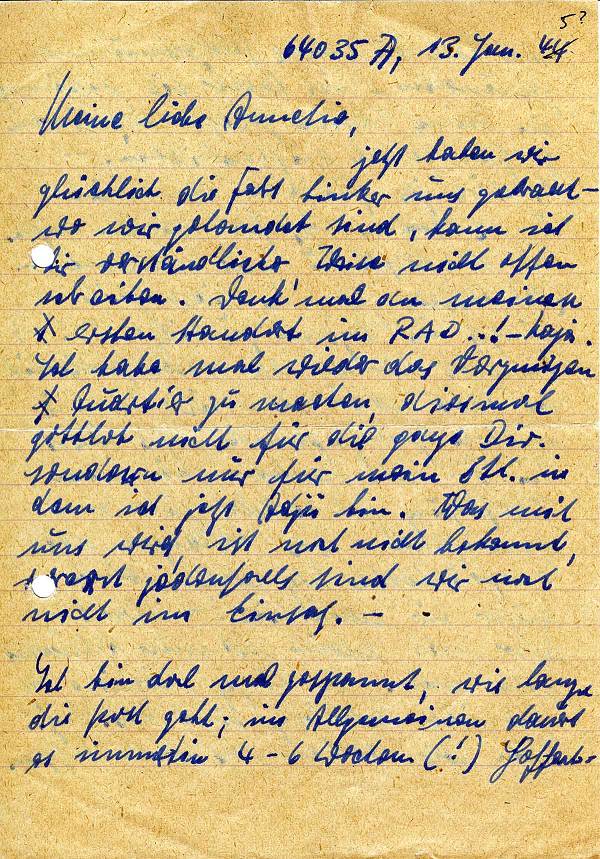 5?
64035 A, 13. Jan. 44
Meine liebe Annelie,
jetzt haben wir
glücklich die Fahrt hinter uns gebracht -
wo wir gelandet sind, kann ich
Dir verständlicher Weise nicht offen
schreiben. Denk' mal an meinen
ersten Standort im RAD..! - naja.
Ich habe mal wieder das Vergnügen
Quartier zu machen, diesmal
gottlob nicht für die ganze Div.
sondern nur für mein Btl. in
dem ich jetzt Adju bin. Was mit
uns wird, ist noch nicht bekannt,
jedenfalls sind wir noch
nicht im Einsatz. -
Ich bin doch mal gespannt, wie lange
die Post geht; im Allgemeinen dauert
es immerhin 4 - 6 Wochen (!) Hoffent-